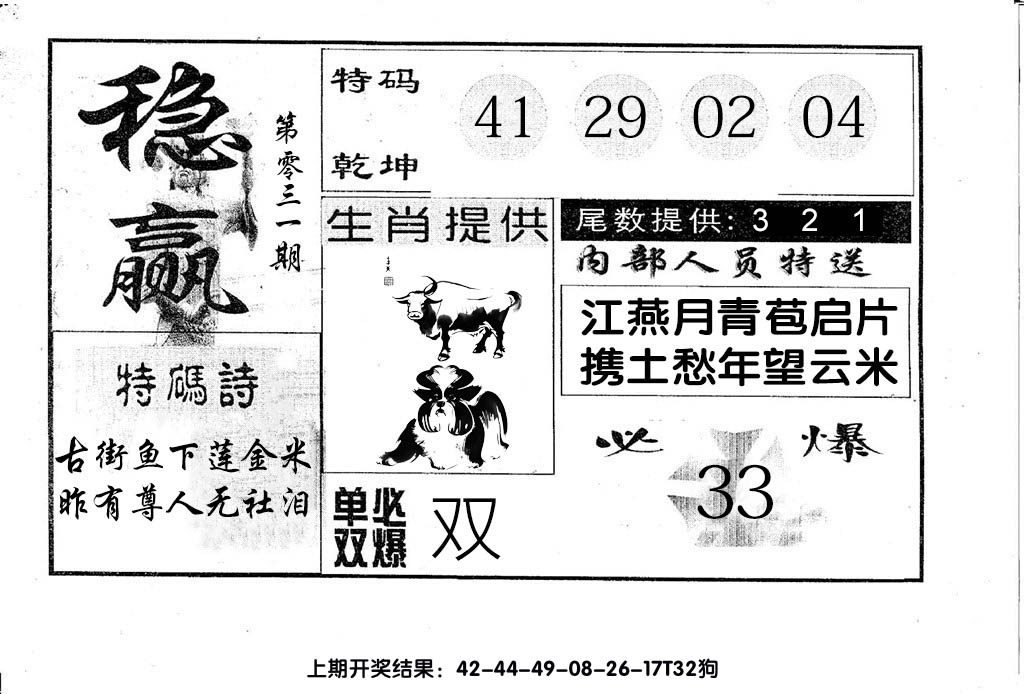 稳赢
第零三一期
特码
乾坤
41 29 02 04
生肖提供
尾数提供: 3 2 1
内部人员特送
江燕月青苞启片
携土愁年望云米
特碼詩
古街鱼下莲金米
昨有尊人无社泪
单双
必爆
双
必爆
33
上期开奖结果：42-44-49-08-26-17T32狗